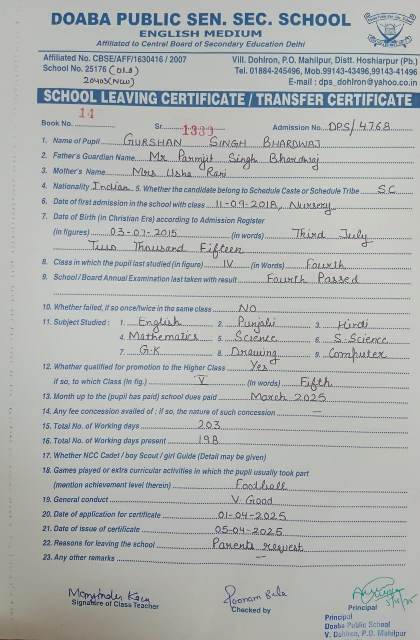 DOABA PUBLIC SEN. SEC. SCHOOL
ENGLISH MEDIUM
Affiliated to Central Board of Secondary Education Delhi
Affiliated No. CBSE/AFF/1630416 / 2007
Vill. Dohlron, P.O. Mahilpur, Distt. Hoshiarpur (Pb.)
School No. 25176 (Old)
Tel. 01884-245496, Mob.99143-43496,99143-41496
20403 (New)
E-mail : dps_dohlron@yahoo.co.in
SCHOOL LEAVING CERTIFICATE / TRANSFER CERTIFICATE
Book No. 14 Sr. 1339 Admission No. DPS/4768
1. Name of Pupil GURSHAN SINGH BHARDWAJ
2. Father's Guardian Name Mr Parmjit Singh Bhardwaj
3. Mother's Name Mrs Usha Rani
4. Nationality Indian 5. Whether the candidate belong to Schedule Caste or Schedule Tribe SC
6. Date of first admission in the school with class 11-09-2018, Nursery
7. Date of Birth (in Christian Era) according to Admission Register
(in figures) 03-07-2015 (in words) Third July
Two Thousand Fifteen
8. Class in which the pupil last studied (in figure) IV (in Words) Fourth
9. School / Board Annual Examination last taken with result Fourth Passed
10. Whether failed, if so once/twice in the same class NO
11. Subject Studied : 1. English 2. Punjabi 3. Hindi
4. Mathematics 5. Science 6. S.Science
7. G.K 8. Drawing 9. Computer
12. Whether qualified for promotion to the Higher Class Yes
if so, to which Class (in fig.) V (in words) Fifth
13. Month up to the (pupil has paid) school dues paid March 2025
14. Any fee concession availed of : if so, the nature of such concession —
15. Total No. of Working days 203
16. Total No. of Working days present 198
17. Whether NCC Cadet / boy Scout / girl Guide (Detail may be given)
18. Games played or extra curricular activities in which the pupil usually took part
(mention achievement level therein) Football
19. General conduct V. Good
20. Date of application for certificate 01-04-2025
21. Date of issue of certificate 05-04-2025
22. Reasons for leaving the school Parents request
23. Any other remarks —
Poonam Bala
Signature of Class Teacher
Checked by
Principal
Principal
Doaba Public School
V. Dohlron, P.O. Mahilpur